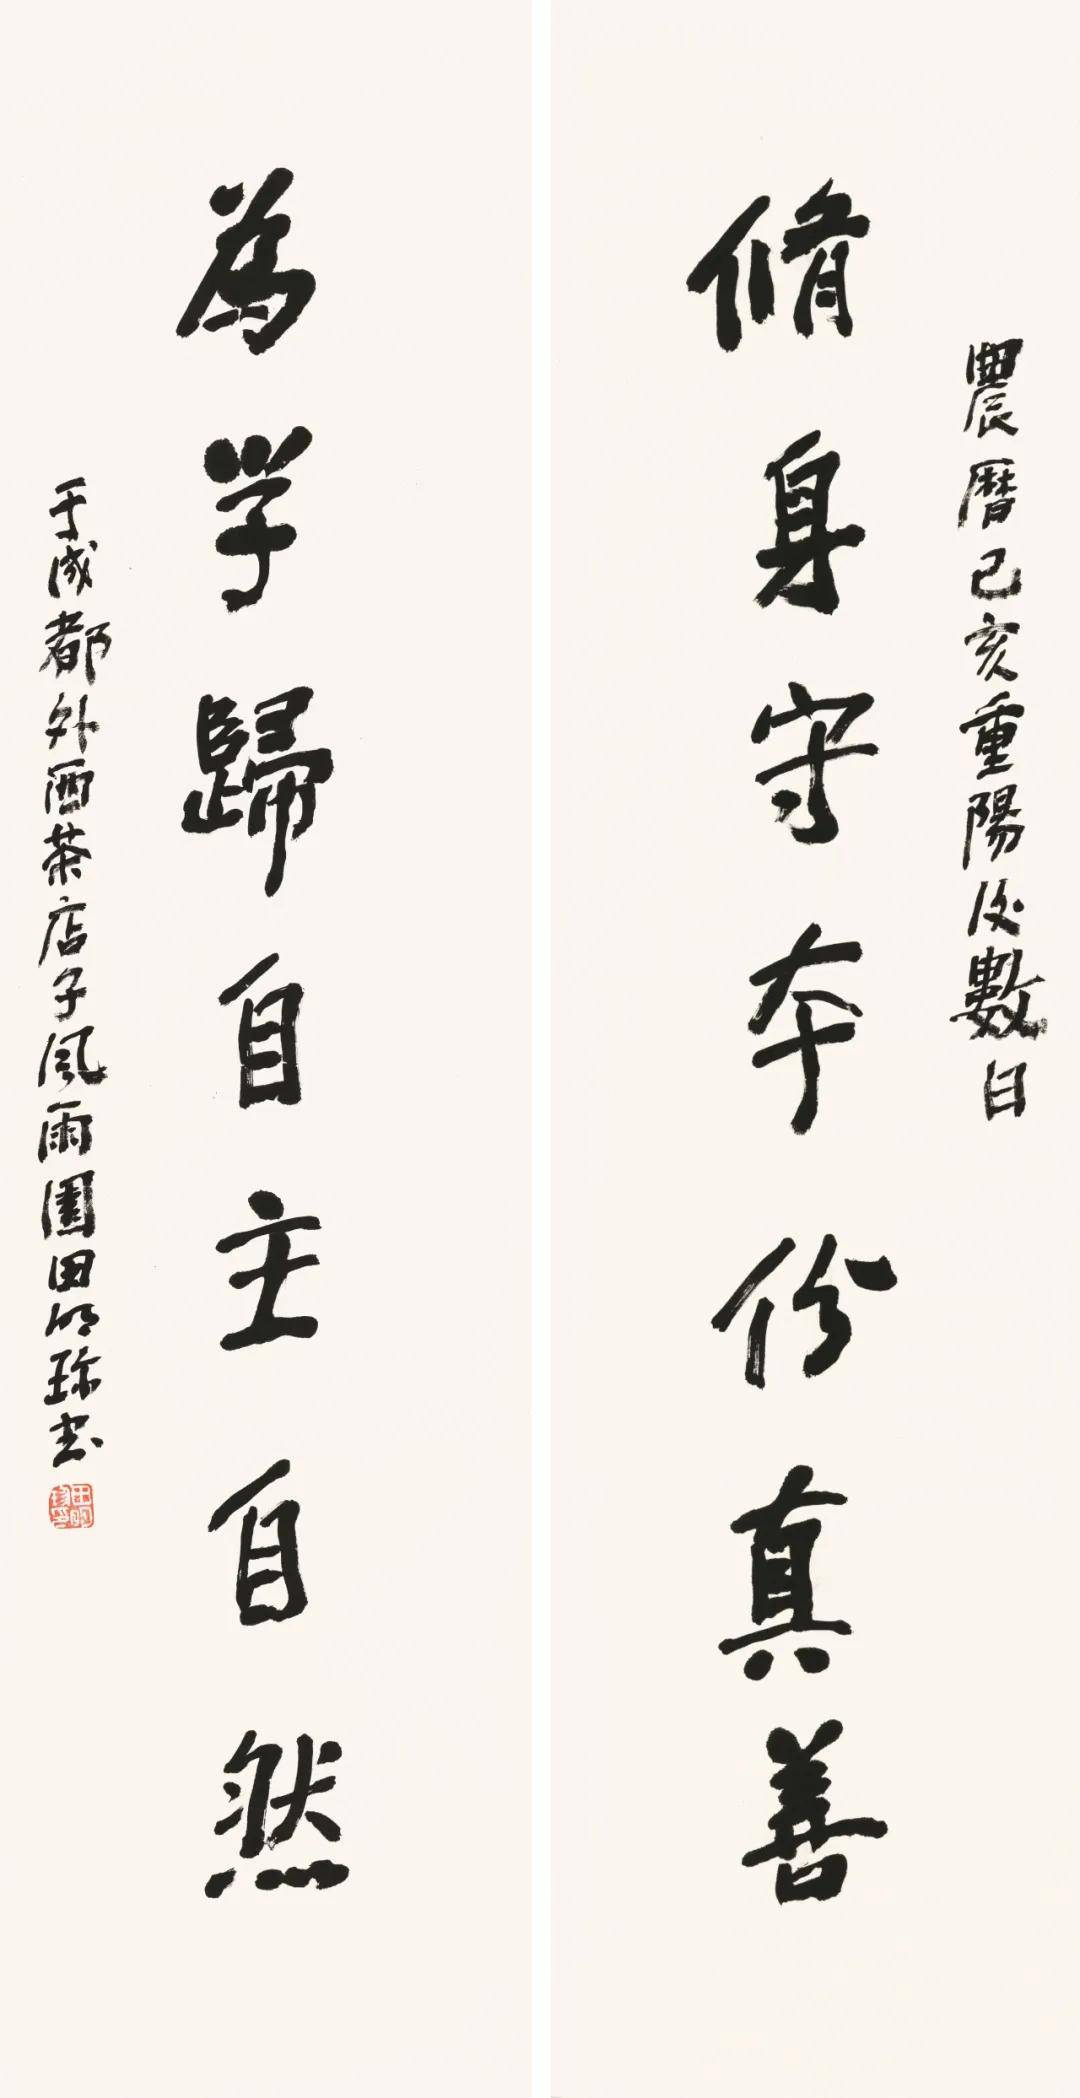 農曆己亥重陽後數日
脩身守本份真善
為学歸自主自然
于成都外西茶店子風雨園田明珍書
田明珍印